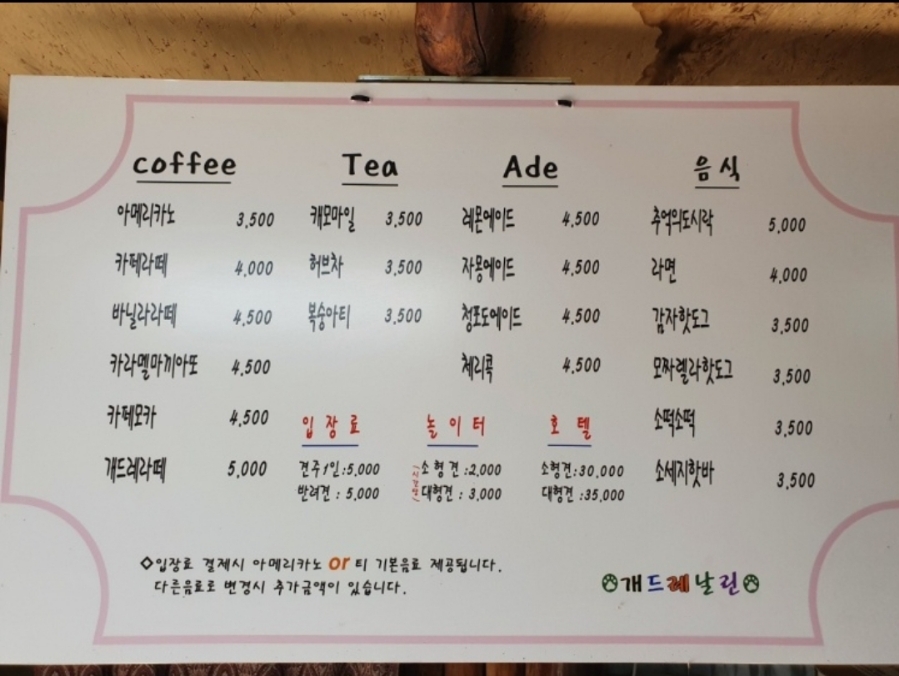 coffee
아메리카노 3,500
카페라떼 4,000
바닐라라떼 4,500
카라멜마끼아또 4,500
카페모카 4,500
개드레라떼 5,000
Tea
캐모마일 3,500
허브차 3,500
복숭아티 3,500
Ade
레몬에이드 4,500
자몽에이드 4,500
청포도에이드 4,500
체리콕 4,500
음식
추억의도시락 5,000
라면 4,000
감자핫도그 3,500
모짜렐라핫도그 3,500
소떡소떡 3,500
소세지핫바 3,500
입장료
견주1인:5,000
반려견 : 5,000
놀이터
소형견:2,000
대형견 : 3,000
호텔
소형견:30,000
대형견:35,000
◇입장료 결제시 아메리카노 or 티 기본음료 제공됩니다.
다른음료로 변경시 추가금액이 있습니다.
개드레날린